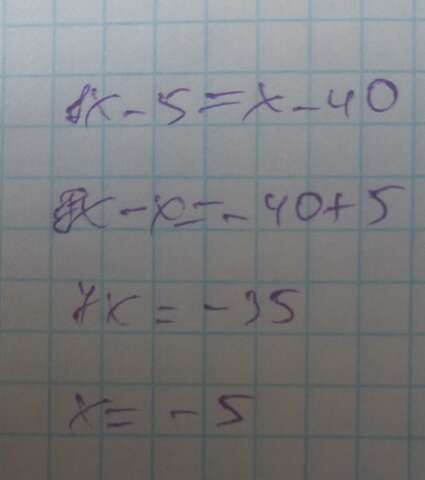 8x - 5 = x - 40
8x - x = - 40 + 5
7x = - 35
x = - 5